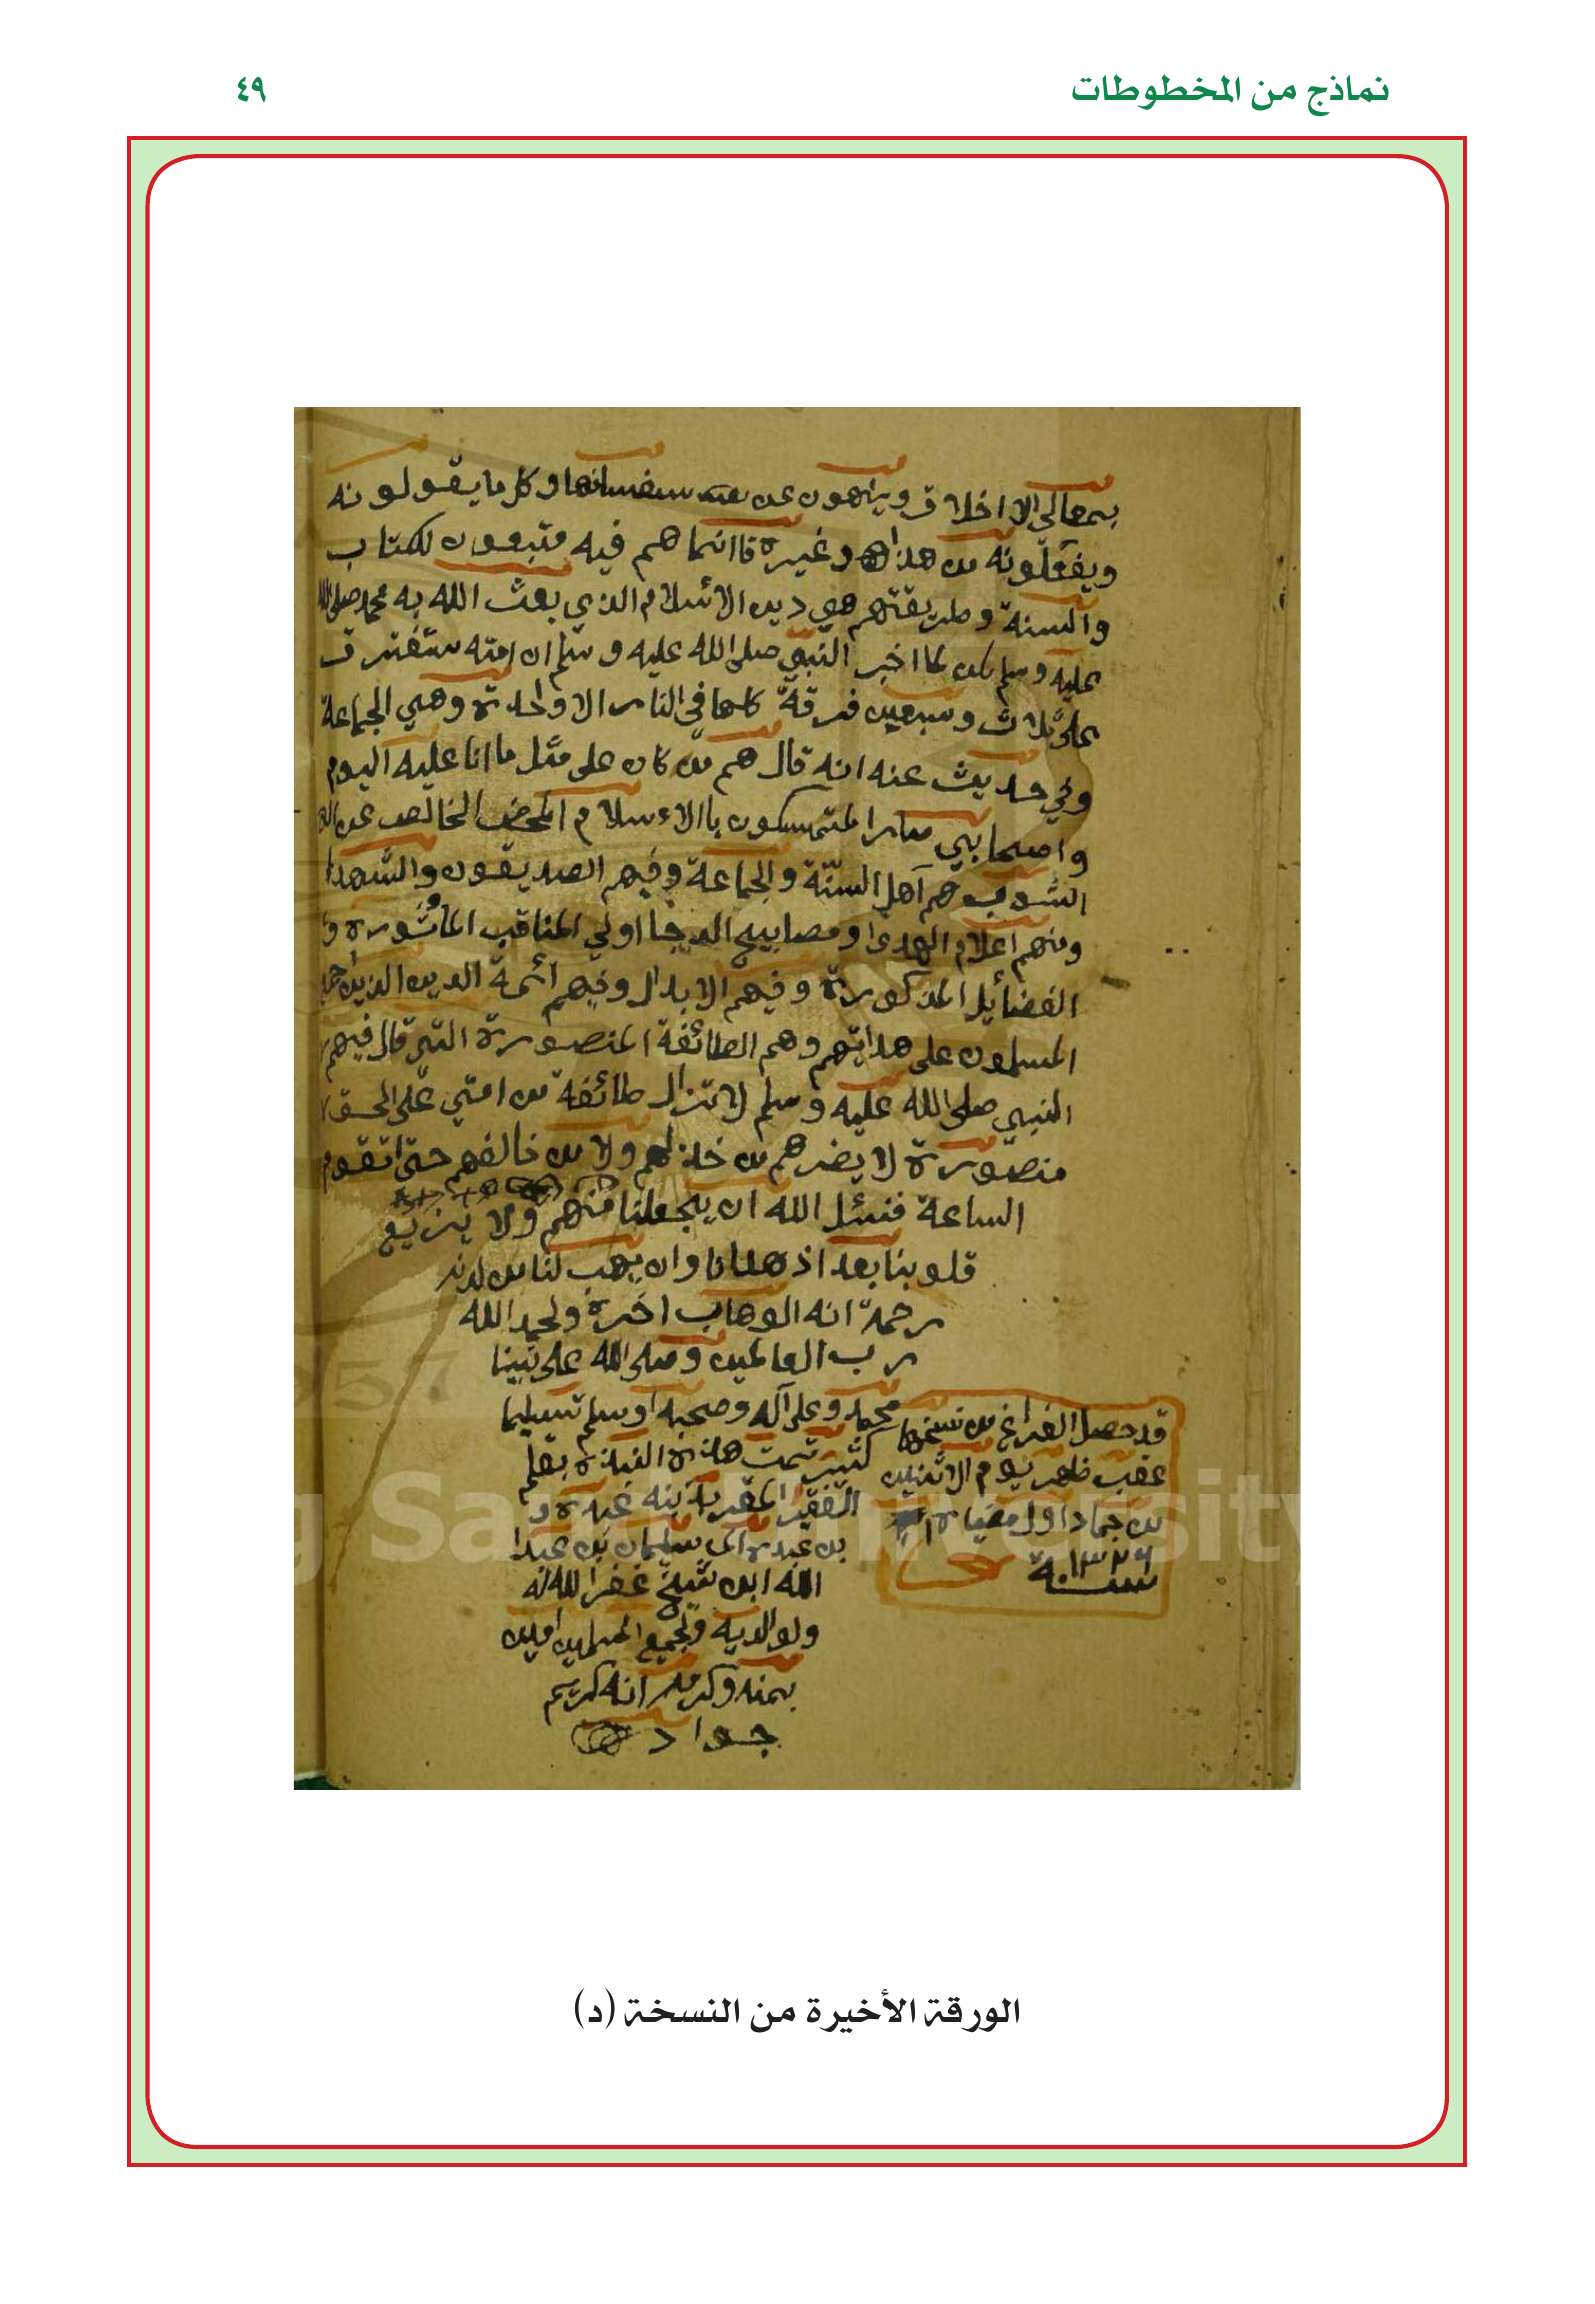 نماذج من المخطوطات
٤٩
بمعالي الاخلاق وينهون عن سفسافها وكل ما يقولونه
ويفعلونه من هذا وغيره فاانما هم فيه متبعون لكتاب
والسنة وطريقتهم هي دين الاسلام الذي بعث الله به محمد صلى الله
عليه وسلم لكن لما اخبر النبي صلى الله عليه وسلم ان امته ستفترق
على ثلاث وسبعين فرقة كلها في النار الا واحدة وهي الجماعة
وفي حديث عنه انه قال هم من كان على مثل ما انا عليه اليوم
واصحابي صار المتمسكون باالاسلام المحض الخالص عن
الشوب هم آهل السنّة والجماعة وفيهم الصديقون والشهدا
ومنهم اعلام الهدى ومصابيح الدجا اولي المناقب المأثورة و
الفضائيل المذكورة وفيهم الابدال وفيهم أئمة الدين الذين
المسلمون على هدايتهم وهم الطائفة المنصورة التي قال فيهم
النبي صلى الله عليه وسلم لا تزال طائفة من امتي على الحق
منصورة لا يضرهم من خذلهم ولا من خالفهم حتى اتقوم
الساعة فنسئل الله ان يجعلنا منهم ولا يزيغ
قلوبنا بعد اذ هدانا وان يهب لنا من لدنه
رحمة انه الوهاب اخره ولحمد الله
رب العالمين وصلى الله على نبينا
محمد وعلى آله وصحبه وسلم تسليما
كثير تمت هذه النبذة بقلم
الفقير المقر بذنبه
بن سليمان بن عبدا
الله ابن شيخ غفر الله له
ولوالديه ولجميع المسلمين امين
بمنه وكرمه انه كريم
جواد
قد حصل الفراغ من نسخها
عقب ظهر يوم الاثنين
من جماد اول
سنة ١٣٢٦
King Saud University
957
الورقة الأخيرة من النسخة (د)